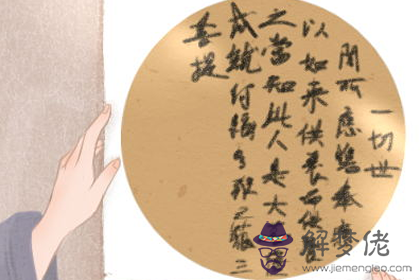 一切世
間所應瞻奉應
以如來供養而供養
之當知此人是大
成就阿耨多羅三藐三
菩提
解夢佬
www.jiemengleo.com